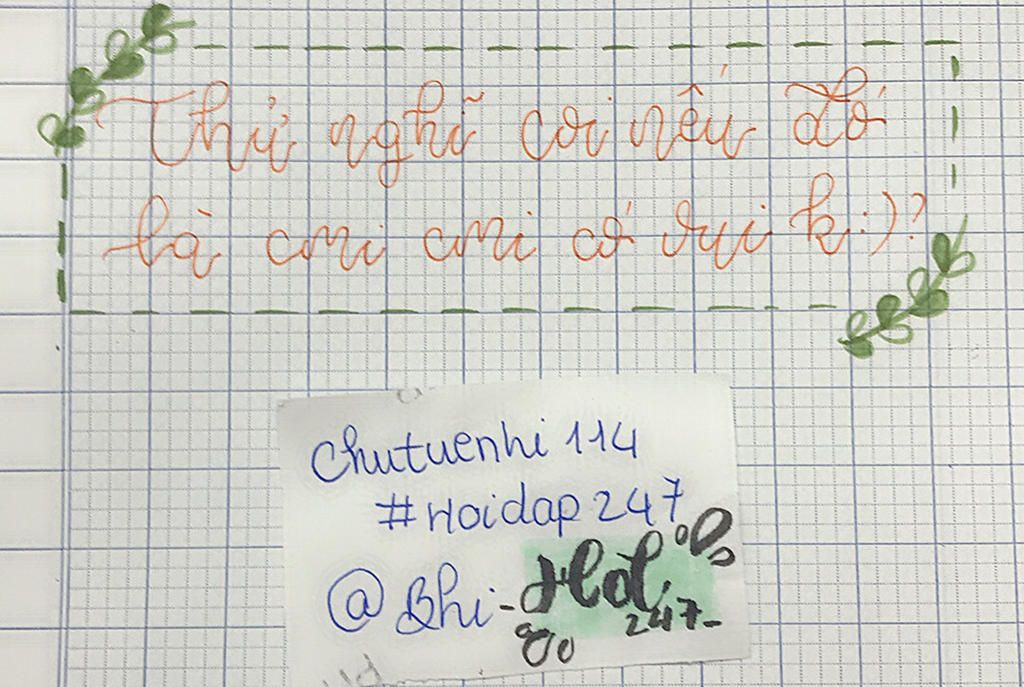 Thử nghĩ coi nếu đó
là cmi cmi có vui k:)?
Chutuenhi 114
#Hoidap 247
@Bhi-Hđ
247-